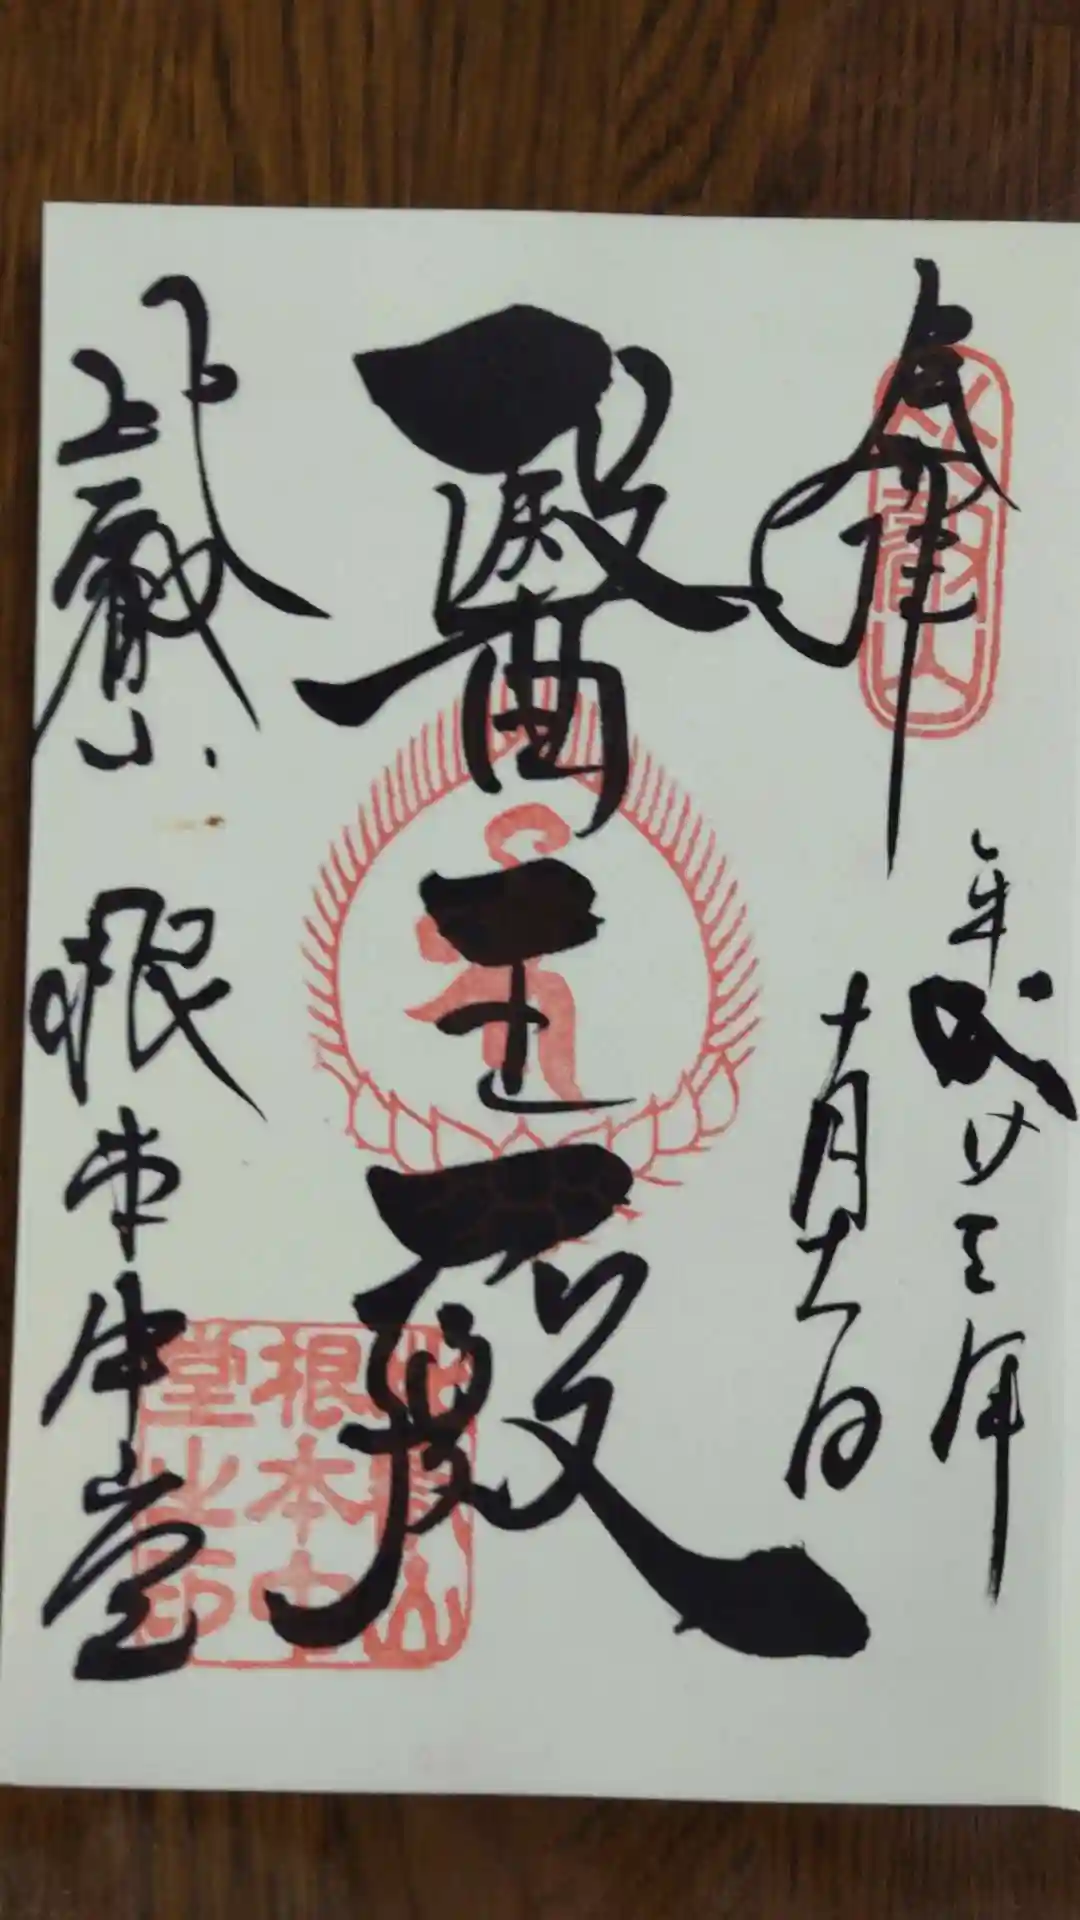 奉拝
平成廿三年
十月十一日
醫王殿
比叡山
根本中堂
比叡山
比叡山
根本中
堂之印